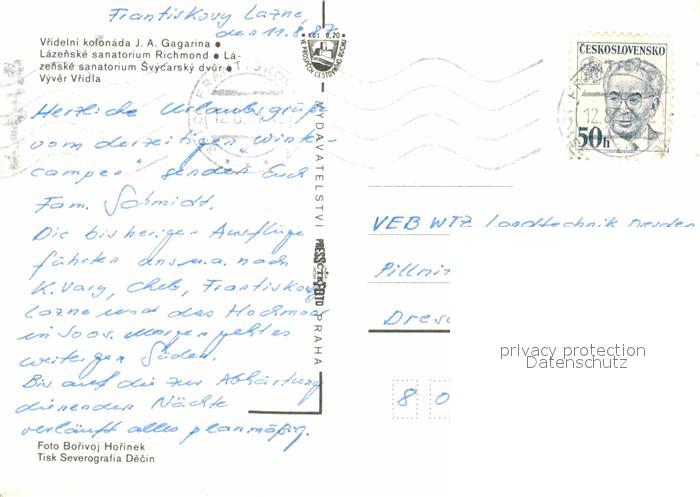 Frantiskovy Lazne,
den 11.8.87
Vřídelní kolonáda J. A. Gagarina •
Lázeňské sanatorium Richmond • Lá-
zeňské sanatorium Švýcarský dvůr •
Vývěr Vřídla
Herzliche Urlaubsgrüße
vom derzeitigen "Wink-
campen" senden Euch
Fam. Schmidt.
Die bisherigen Ausflüge
führten uns u.a. nach
K. Vary, Cheb, Frantiskovy
Lazne und das Hochmoor
in Soos. Morgen geht es
weiter gen Süden.
Bis auf die zur Abhärtung
dienenden Nächte
verläuft alles planmäßig.
Foto Bořivoj Hořínek
Tisk Severografia Děčín
KčS 0,20
VE PROSPĚCH CESTOVNÍHO RUCHU
VYDAVATELSTVÍ
PRESSFOTO
PRAHA
ČESKOSLOVENSKO
50h
12.8
VEB WTZ Landtechnik Dresden
Pillnit
Dresd
8 0
privacy protection
Datenschutz